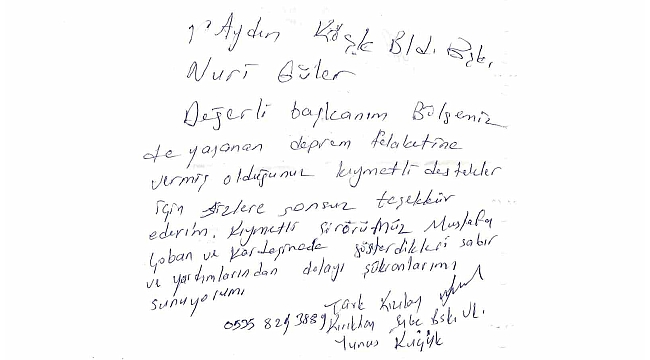 Aydın Köşk Bld. Bşk.
Nuri Güler
Değerli başkanım Bölgemiz
de yaşanan deprem felaketine
vermiş olduğunuz kıymetli destekler
için sizlere sonsuz teşekkür
ederim. Kıymetli şöförümüz Mustafa
Çoban ve Kardeşinede gösterdikleri sabır
ve yardımlarından dolayı şükranlarımı
sunuyorum
Türk Kızılay
0535 829 3889 Kırıkhan Şube Bşk. V.
Yunus Küçük